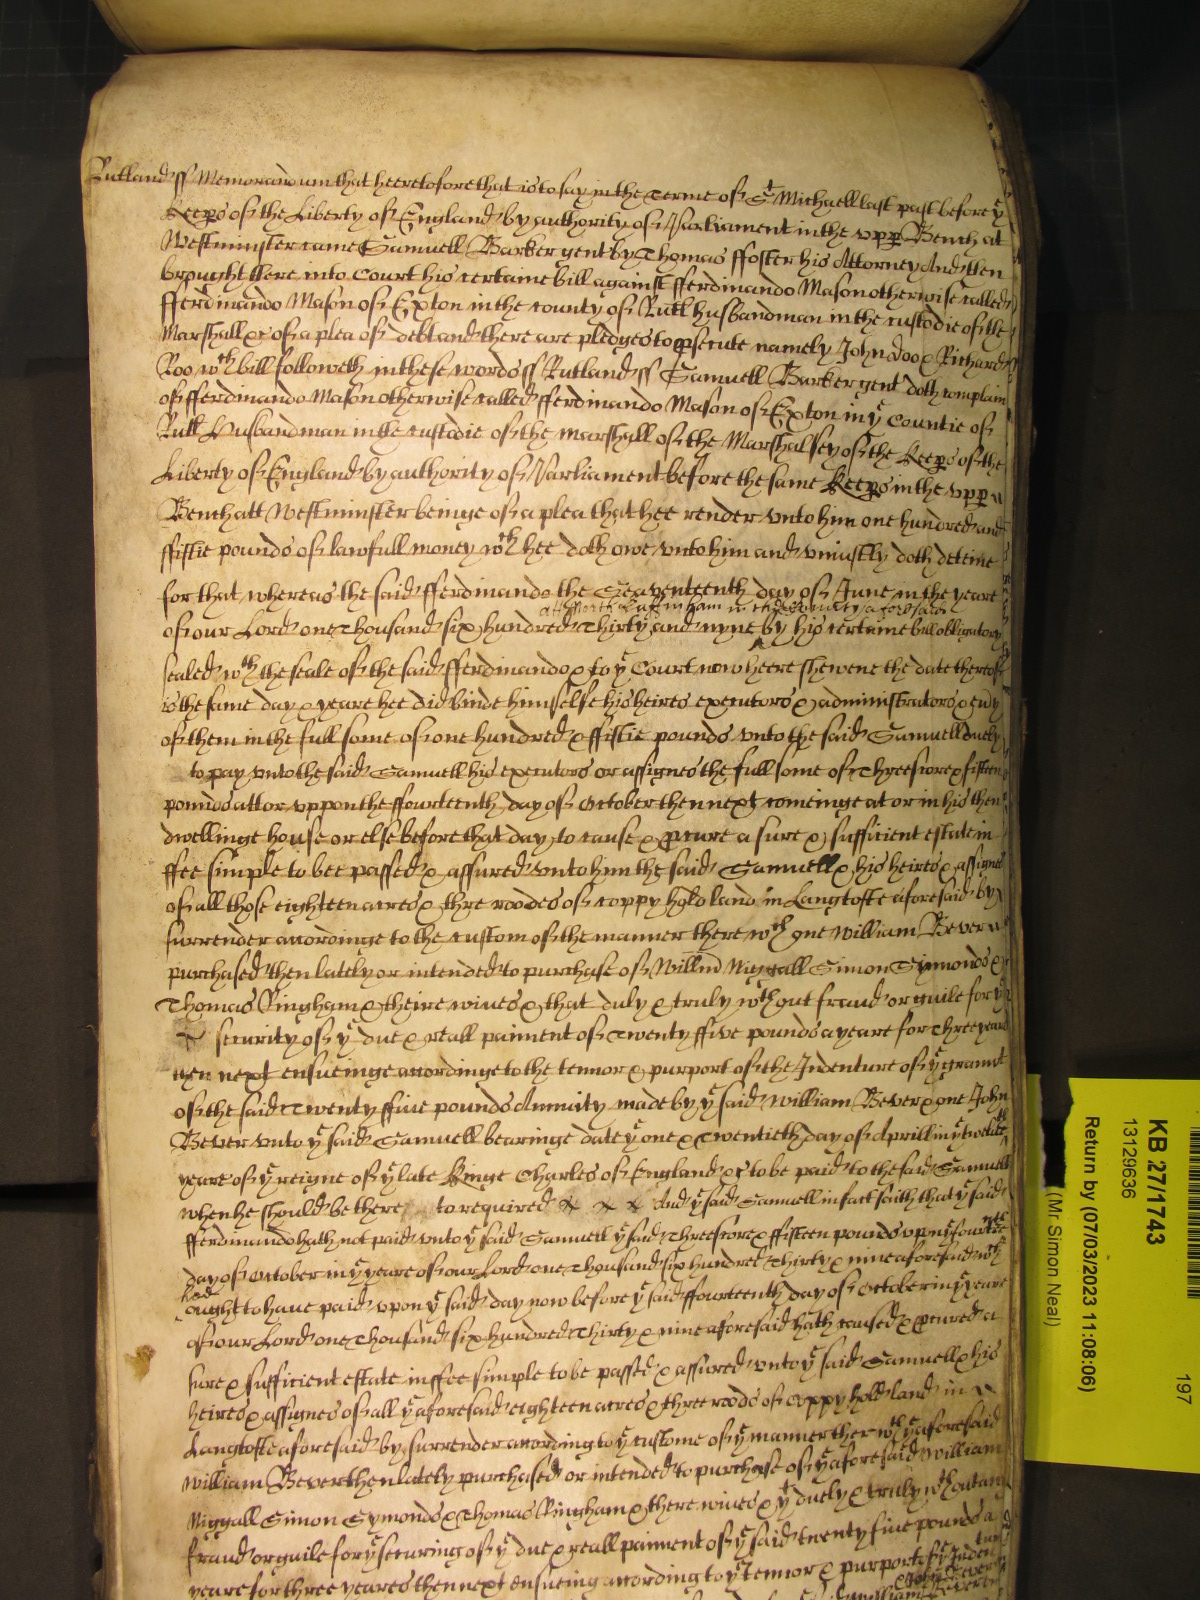 Rutland ss Memorandum that heeretofore that is to say in the Terme of St Michaell last past before ye
Keeps of the Liberty of England by authority of Parliament in the vpp Bench at
Westminster came Samuell Barker gent by Thomas ffoster his Attorney And then
brought there into Court his certaine bill against fferdinando Mason otherwise called
fferdinando Mason of Exton in the county of Rutl husbandman in the custodie of the
Marshall &c of a plea of debt and there are pledges to psecute namely John doo & Richard
Roo wth bill followeth in these words ss Rutland ss Samuell Barker gent doth complain
of fferdinando Mason otherwise called fferdinando Mason of Exton in ye Countie of
Rutl Husbandman in the custodie of the marshall of the Marshalsey of the Keeps of the
Liberty of England by authority of Parliament before the same Keeps in the vpp
Bench att Westminster beinge of a plea that hee render vnto him one hundred and
ffiftie pounds of lawfull money wch hee doth owe vnto him and vniustly doth deteine
for that whereas the said fferdinando the Seaventeenth day of June in the yeare
at North Luffenham in the County aforesaid
of our Lord one Thousand six hundred Thirty and nyne by his certaine bill obligatory
sealed wth the seale of the said fferdinando & to ye Court now heere shewene the date thereof
is the same day & yeare hee did binde himselfe his heires executors & administrators & euy
of them in the full some of one hundred & ffiftie pounds vnto the said Samuell duely
to pay vnto the said Samuell his executors or assignes the full some of Threescore & fifteen
pounds att or vppon the ffourteenth day of October then next comeinge at or in his then
dwellinge house or else before that day to cause & pcure a sure & sufficient estate in
ffee simple to bee passed & assured vnto him the said Samuell & his heires & assignes
of all those eighteen acres & thre roodes of coppy hold land in Langtofte aforesaid by
surrender accordinge to the custom of the manner there wch one William Bever
purchased then lately or intended to purchase of Willm Niggall Simon Symonds &
Thomas Ringham & theire wiues & that duly & truly wthout fraud or guile for ye
security of ye due & reall paiment of Twenty ffive pounds a yeare for Three years
then next ensueinge accordinge to the tennor & purport of the Indenture of ye graunt
of the said Twenty ffiue pounds Annuity made by ye said William Bever & one John
Bever vnto ye said Samuell bearinge date ye one & Twentieth day of Aprill in ye twelfth
yeare of ye reigne of ye late Kinge Charles of England &c to be paid to the said Samuell
when he should be there to required And ye said Samuell in fact saith that ye said
fferdinando hath not paid vnto ye said Samuell ye said Threescore & ffifteen pounds vpon ye fourteenth
day of October in ye yeare of our Lord one Thousand six hundred Thirty & nine aforesaid wch
hee
ought to haue paid vpon ye said day now before ye said ffourteenth day of October in ye yeare
of our Lord one Thousand six hundred Thirty & nine aforesaid hath caused & pcured a
sure & sufficient estate in ffee simple to be passed & assured vnto ye said Samuell & his
heires & assignes of all ye aforesaid eighteen acres & three roods of coppy hold land in
Langtofte aforesaid by surrender according to ye custome of ye manner ther wch ye aforesaid
William Bever then lately purchased or intended to purchase of ye aforesaid William
Niggall Simon Symonds & Thomas Ringham & there wiues & yt duely & truly wthout any
fraud or guile for ye securing of ye due & reall paiment of ye said twenty fiue pounds a
yeare for three yeares then next ensueing according to ye Tennor & purport of ye Inden
KB 27/1743
13129636
Return by (07/03/2023 11:08:06)
(Mr Simon Neal)
197